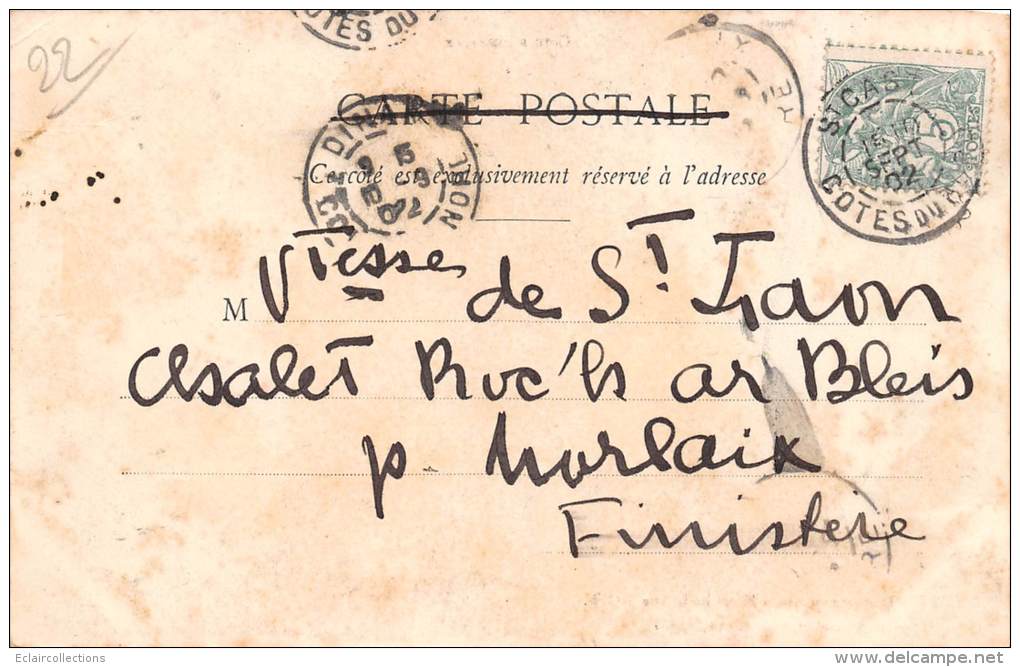 22
COTES DU
CARTE POSTALE
Ce côté est exclusivement réservé à l'adresse
ST CAST
SEPT
02
COTES DU
5
POSTES
M Vtesse de St Traon
Chalet Roc'h ar Bleis
p. Morlaix
Finistère
Eclaircollections
delcampe.net